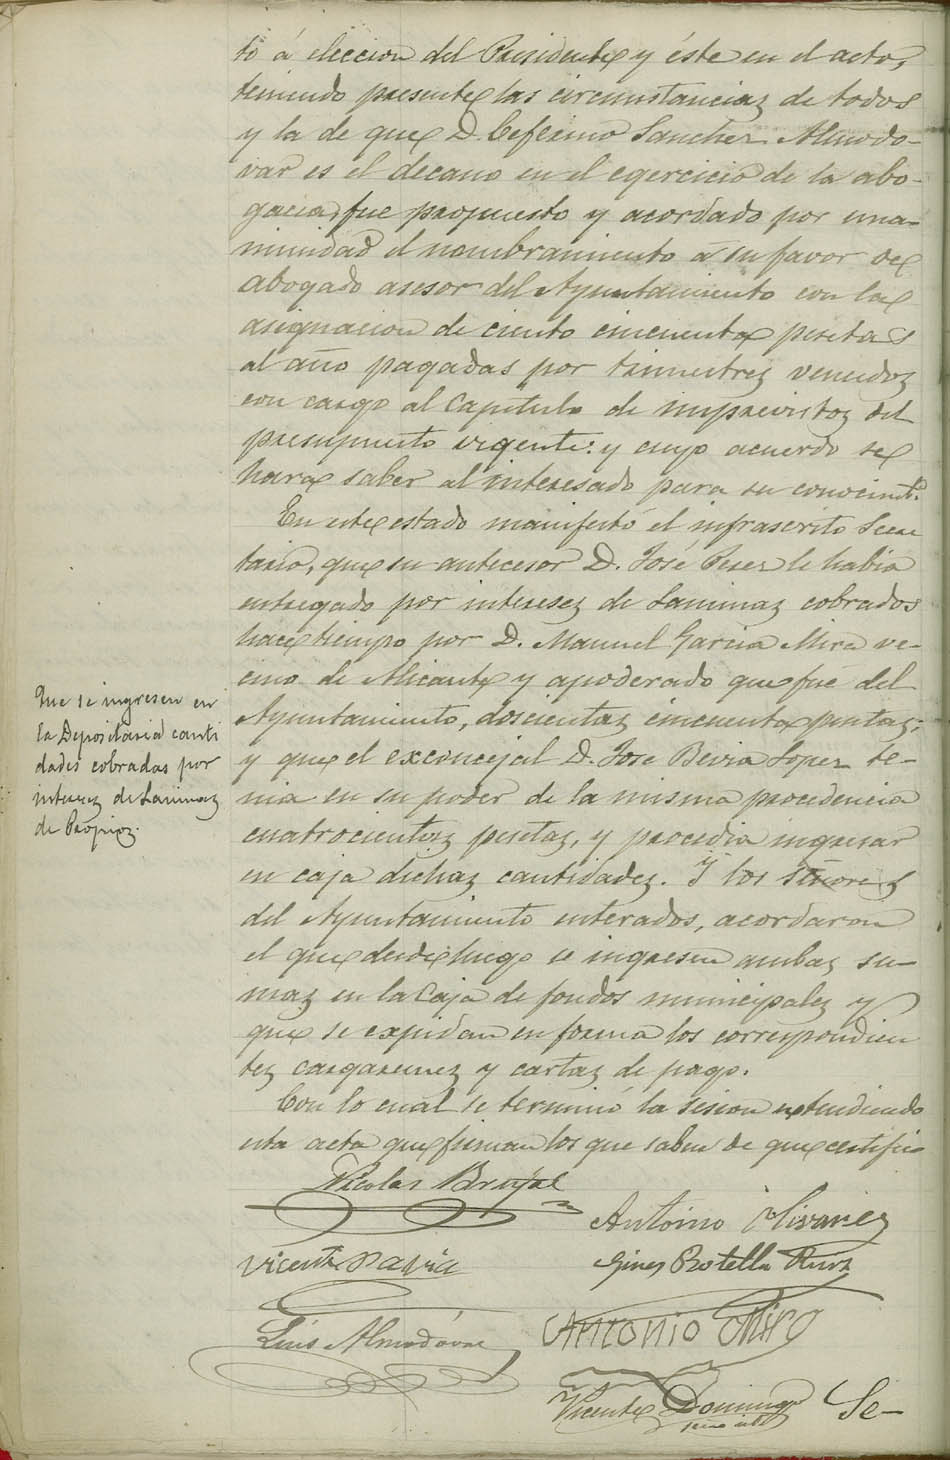 to á eleccion del Presidente y éste en el acto,
teniendo presente las circunstancias de todos
y la de que D. Ceferino Sanchez Almodo-
var es el decano en el egercicio de la abo-
gacia, fue propuesto y acordado por una-
nimidad el nombramiento á su favor de
Abogado asesor del Ayuntamiento con la
asignacion de ciento cincuenta pesetas
al año pagadas por trimestres vencidos
con cargo al Capitulo de imprevistos del
presupuesto vigente: y cuyo acuerdo se
hara saber al interesado para su conocimto.
En este estado manifestó el infrascrito Secre
tario, que su antecesor D. José Perez le habia
entregado por intereses de Laminas cobrados
hace tiempo por D. Manuel Garcia Mira ve-
cino de Alicante y apoderado que fué del
Ayuntamiento, doscientas cincuenta pesetas;
y que el exconcejal D. Jose Beviá Lopez te-
nia en su poder de la misma procedencia
cuatrocientas pesetas, y procedia ingresar
en caja dichas cantidades. Y los Señores
del Ayuntamiento enterados, acordaron
el que desde luego se ingresen ambas su-
mas en la Caja de fondos municipales y
que se expidan en forma los correspondien
tes cargaremes y cartas de pago.
Con lo cual se terminó la sesion extendiendo
esta acta que firman los que saben de que certifico
Que se ingresen en
la Depositaria canti
dades cobradas por
intereses de Laminas
de Propios.
Nicolas Brufal
Antonio Olivares
Vicente Pavia
Gines Botella
Luis Almodovar
Antonio Miro
Vicente Domingo
Se-